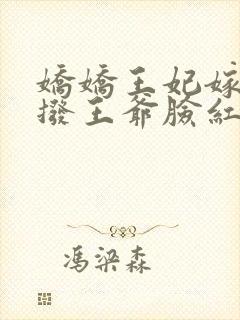 嬌嬌王妃嫁
撥王爺臉紅
馮梁森